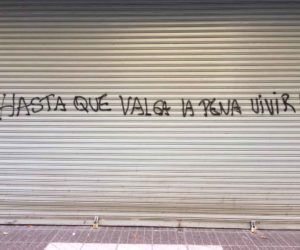 HASTA QUE VALGA LA PENA VIVIR